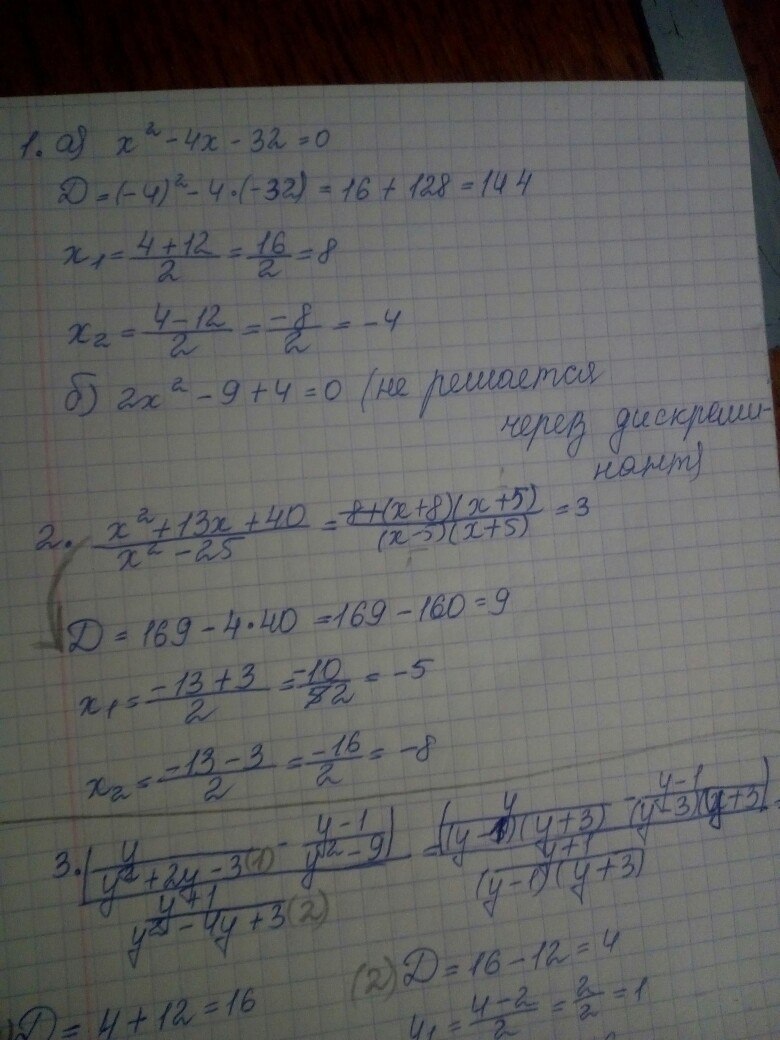 1. а) x² - 4x - 32 = 0
Д = (-4)² - 4·(-32) = 16 + 128 = 144
x₁ = (4+12)/2 = 16/2 = 8
x₂ = (4-12)/2 = -8/2 = -4
б) 2x² - 9 + 4 = 0 (не решается
через дискреми-
нант)
2. (x² + 13x + 40)/(x² - 25) = ((x+8)(x+5))/((x-5)(x+5)) = 3
Д = 169 - 4·40 = 169 - 160 = 9
x₁ = (-13+3)/2 = -10/2 = -5
x₂ = (-13-3)/2 = -16/2 = -8
3. (y/(y² + 2y - 3) (1) - (y-1)/(y² - 9)) / ((y+1)/(y² - 4y + 3)) (2) = (y/((y-1)(y+3)) - (y-1)/((y-3)(y+3))) / ((y+1)/((y-1)(y+3)))
(2) Д = 16 - 12 = 4
Д = 4 + 12 = 16
y₁ = (4-2)/2 = 2/2 = 1